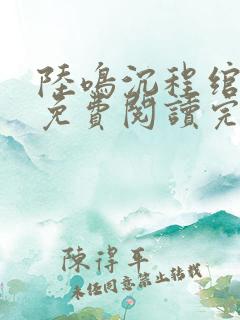 陸鳴沉程綰
免費閱讀完
陳得平
未經同意禁止转载